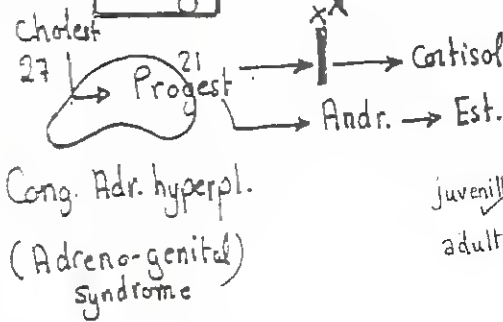 Cholest
27
Progest 21
Cortisol
Andr. → Est.
Cong. Adr. hyperpl.
(Adreno-genital)
syndrome
adult